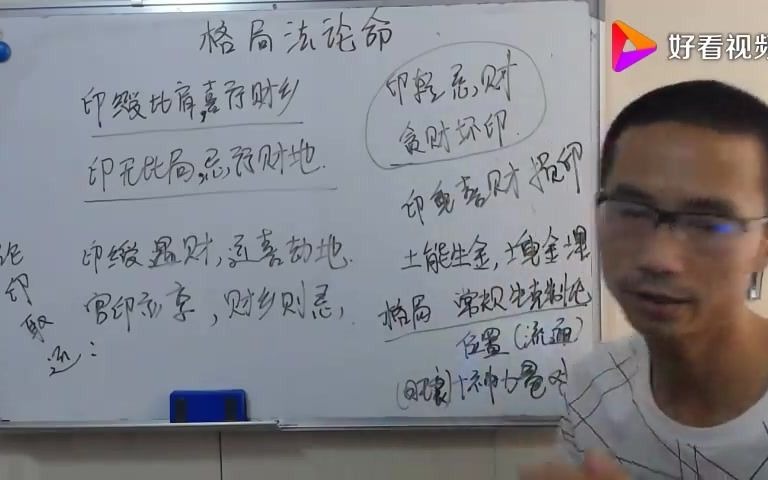 格局法论命
印绶比肩,喜行财乡
印无比局,忌行财地.
印绶遇财,运喜劫地.
官印亦享,财乡则忌,
论印取运:
印轻忌财
贪财坏印.
印鬼喜财损印
土能生金,土鬼金埋
格局 常规生克制化
位置(流通)
十神力量
好看视频